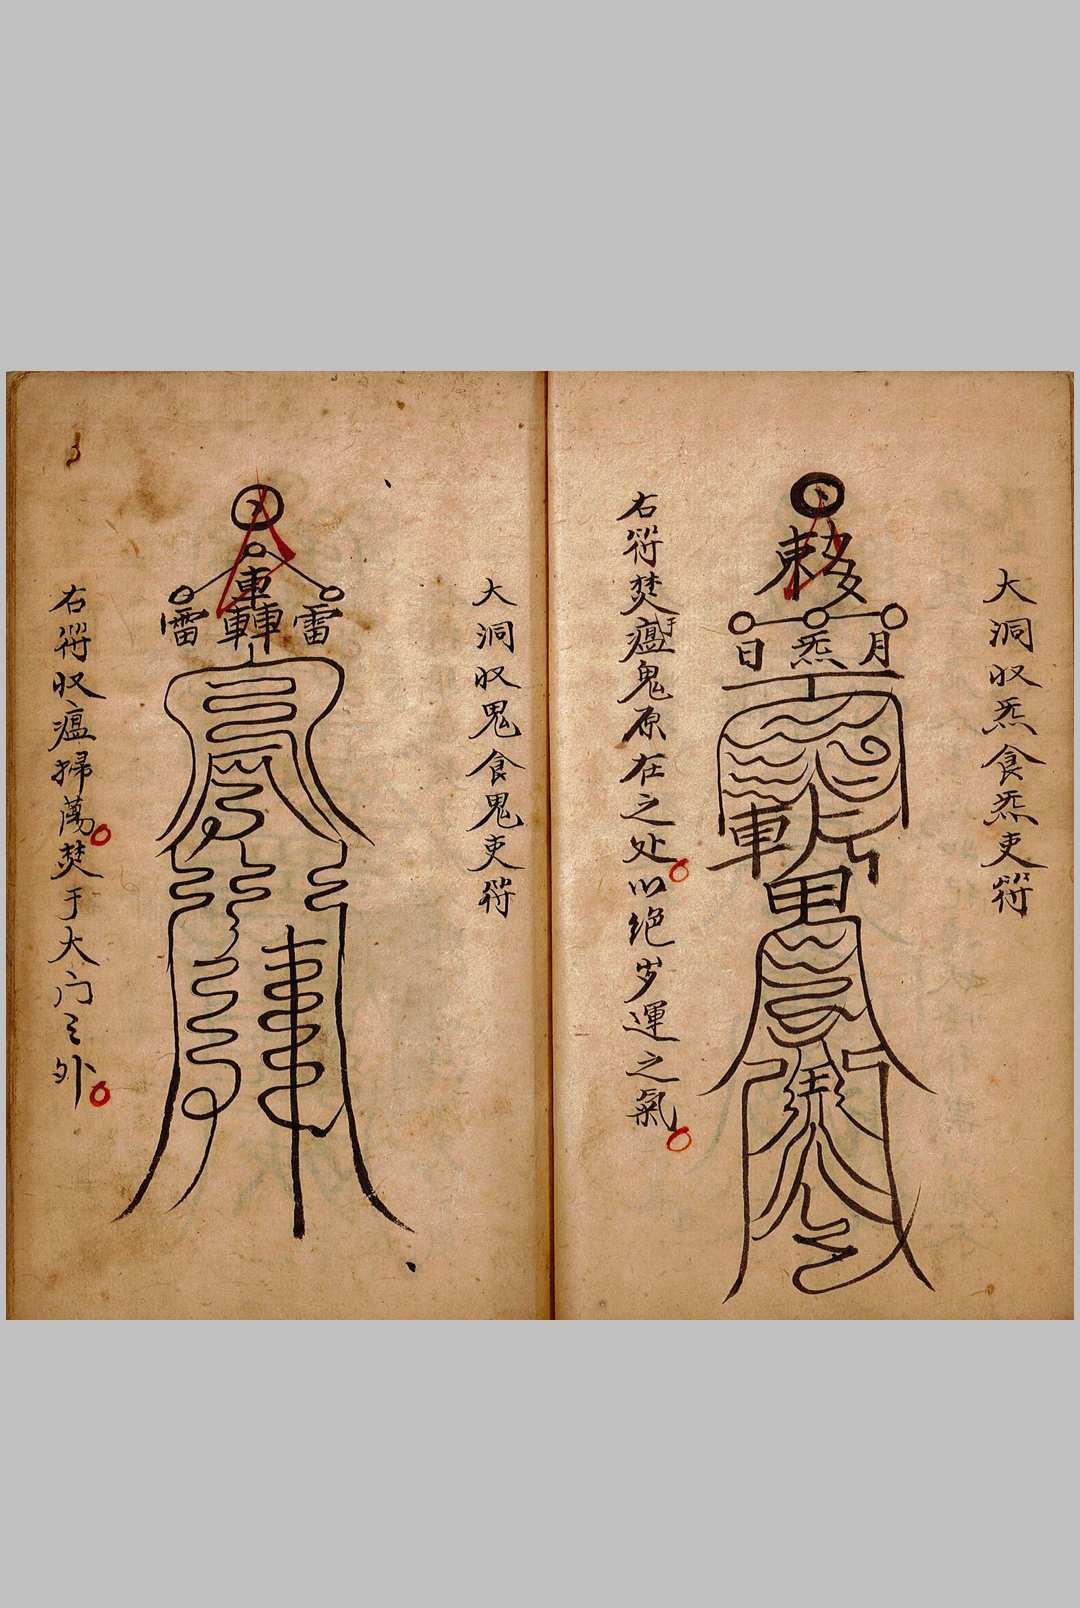 大洞収炁食炁吏符
敕
日炁月
斬
右符焚于瘟鬼原在之处
以绝岁運之氣
大洞収鬼食鬼吏符
雷轟雷
右符収瘟掃蕩
焚于大门之外